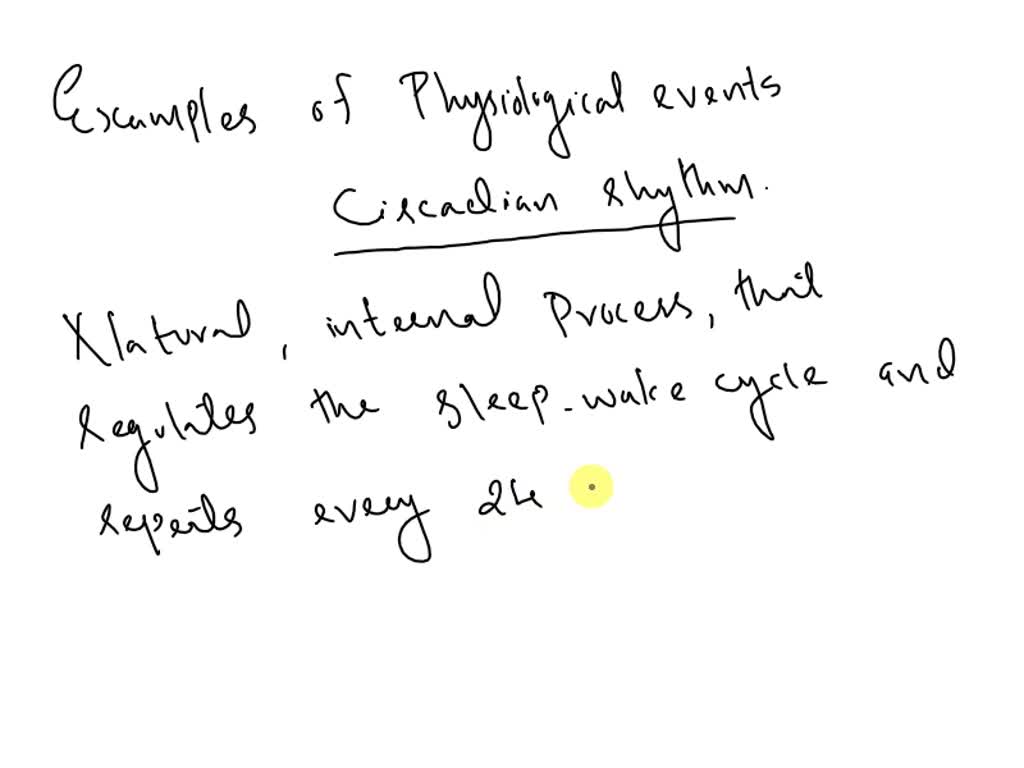 Examples of Physiological events
Circadian rhythm.
Natural, internal Process, that
regulates the sleep-wake cycle and
repeats every 24